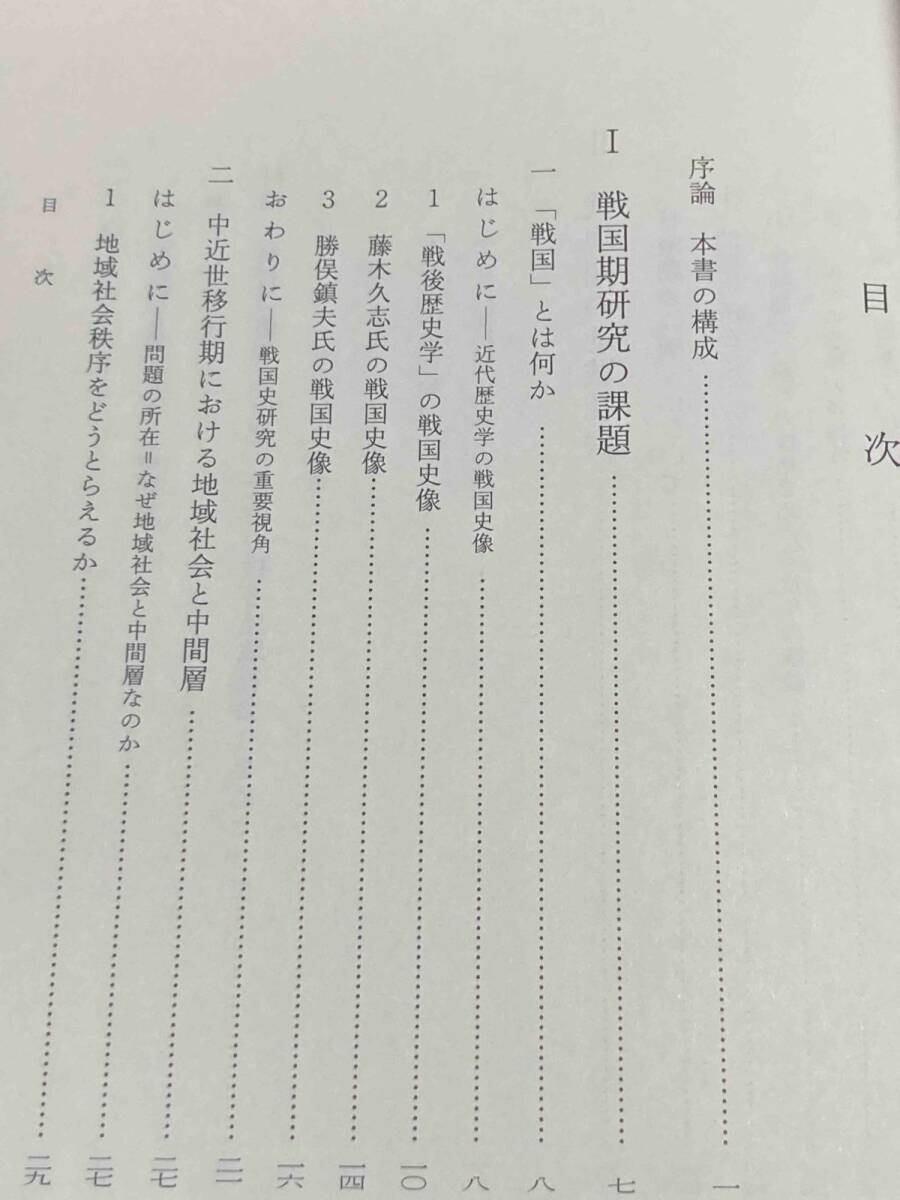 目次
序論 本書の構成……………………一
Ⅰ 戦国期研究の課題……………………七
一 「戦国」とは何か……………………八
はじめに――近代歴史学の戦国史像……………………八
1 「戦後歴史学」の戦国史像……………………一〇
2 藤木久志氏の戦国史像……………………一四
3 勝俣鎮夫氏の戦国史像……………………一六
おわりに――戦国史研究の重要視角……………………二一
二 中近世移行期における地域社会と中間層……………………二七
はじめに――問題の所在=なぜ地域社会と中間層なのか……………………二七
1 地域社会秩序をどうとらえるか……………………二九
目次